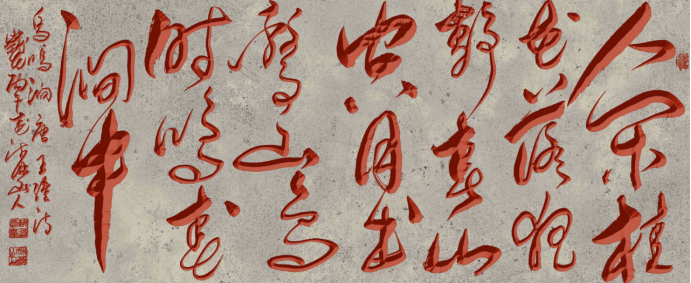 人闲桂
花落夜
静春山
空月出
惊山鸟
时鸣春
涧中
鸟鸣涧唐王维诗
山人